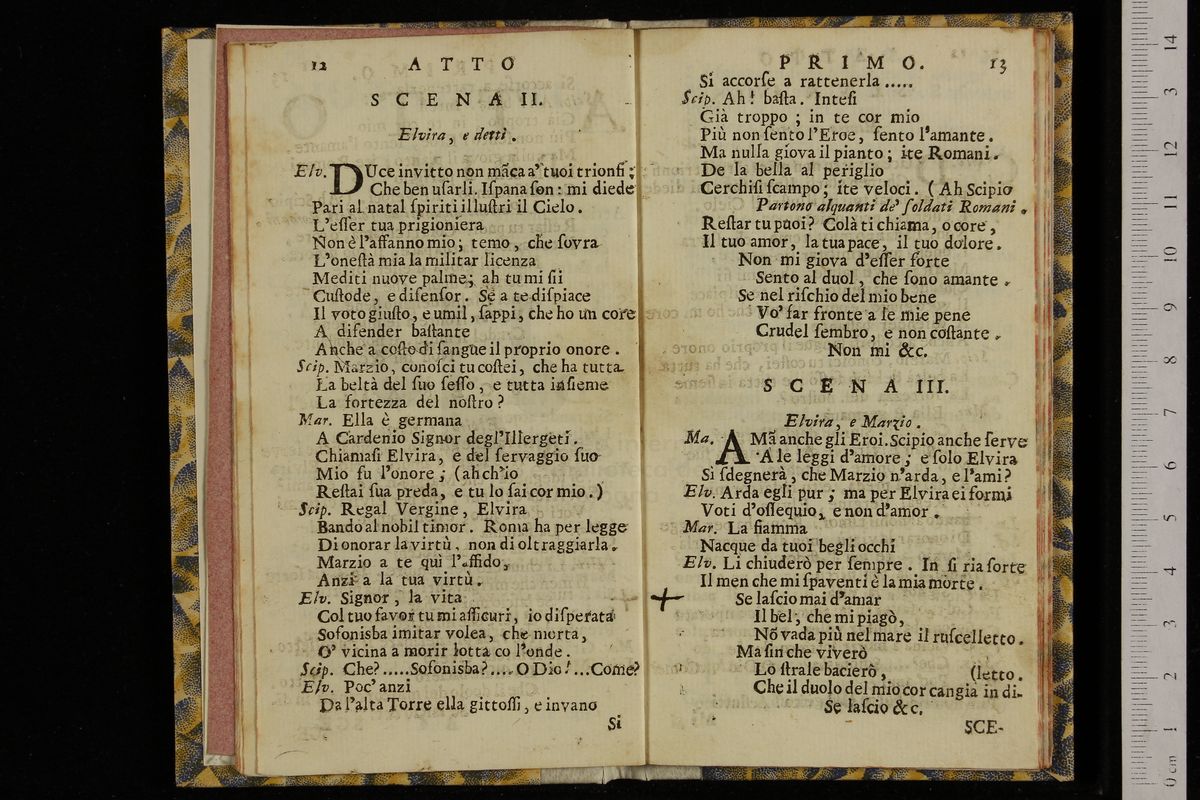 12 ATTO
SCENA II.
Elvira, e detti.
Elv. DUce invitto non mãca a' tuoi trionfi;
Che ben usarli. Iſpana ſon: mi diede
Pari al natal ſpiriti illuſtri il Cielo.
L'eſſer tua prigioniera
Non è l'affanno mio; temo, che ſovra
L'oneſtà mia la militar licenza
Mediti nuove palme; ah tu mi ſii
Cuſtode, e difenſor. Se a te diſpiace
Il voto giuſto, e umil, ſappi, che ho un core
A difender baſtante
Anche a coſto di ſangue il proprio onore.
Scip. Marzio, conoſci tu coſtei, che ha tutta
La beltà del ſuo ſeſſo, e tutta inſieme
La fortezza del noſtro?
Mar. Ella è germana
A Cardenio Signor degl'Illergeti.
Chiamaſi Elvira, e del ſervaggio ſuo
Mio fu l'onore; (ah ch'io
Reſtai ſua preda, e tu lo ſai cor mio.)
Scip. Regal Vergine, Elvira
Bando al nobil timor. Roma ha per legge
Di onorar la virtù, non di oltraggiarla.
Marzio a te qui l'affido,
Anzi a la tua virtù.
Elv. Signor, la vita
Col tuo favor tu mi aſſicuri, io diſperata
Sofonisba imitar volea, che morta,
O' vicina a morir lotta co l'onde.
Scip. Che?.....Sofonisba?.... O Dio!...Come?
Elv. Poc'anzi
Da l'alta Torre ella gittoſſi, e invano
Si
PRIMO. 13
Si accorſe a rattenerla.....
Scip. Ah! baſta. Inteſi
Già troppo; in te cor mio
Più non ſento l'Eroe, ſento l'amante.
Ma nulla giova il pianto; ite Romani.
De la bella al periglio
Cerchiſi ſcampo; ite veloci. (Ah Scipio
Partono alquanti de' ſoldati Romani.
Reſtar tu puoi? Colà ti chiama, o core,
Il tuo amor, la tua pace, il tuo dolore.
Non mi giova d'eſſer forte
Sento al duol, che ſono amante.
Se nel riſchio del mio bene
Vo' far fronte a le mie pene
Crudel ſembro, e non coſtante.
Non mi &c.
SCENA III.
Elvira, e Marzio.
Ma. AMã anche gli Eroi. Scipio anche ſerve
A le leggi d'amore; e ſolo Elvira
Si ſdegnerà, che Marzio n'arda, e l'ami?
Elv. Arda egli pur; ma per Elvira ei formi
Voti d'oſſequio, e non d'amor.
Mar. La fiamma
Nacque da tuoi begli occhi
Elv. Li chiuderò per ſempre. In ſi ria ſorte
Il men che mi ſpaventi è la mia morte.
Se laſcio mai d'amar
Il bel, che mi piagò,
Nõ vada più nel mare il ruſcelletto.
Ma fin che viverò
Lo ſtrale bacierò, (letto.
Che il duolo del mio cor cangia in di-
Se laſcio &c.
SCE-
14
3
12
11
10
9
8
7
6
5
4
3
2
1
0 cm